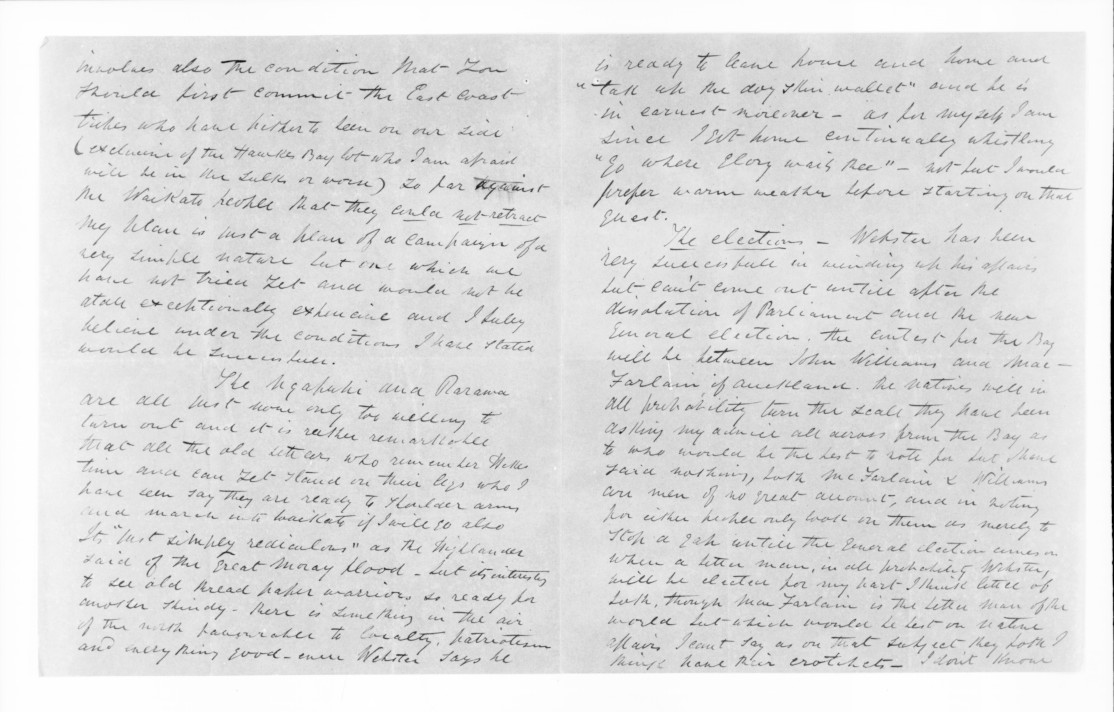 involves also the condition that You
should first commit the East Coast
tribes who have hitherto been on our side
(exclusive of the Hawkes Bay lot who I am afraid
will be in the sulks or worse) so far against
the Waikato people that they could not retract
my plan is just a plan of a campaign of a
very simple nature but one which we
have not tried yet and would not be
atall exceptionally expensive and I fuley
believe under the conditions I have stated
would be successfull.
The Ngapuhi and Rarawa
are all just now only too willing to
turn out and it is rather remarkable
that all the old settlers who remember Hekes
time and can yet stand on their legs who I
have seen say they are ready to shoulder arms
and march into Waikato if I will go also
Its "just simply rediculous" as the Highlander
said of the great Moray flood - but its interesting
to see old bread paper warriors so ready for
another shindy - there is something in the air
of the north favourable to loyalty, patriotism
and everything good - even Webster says he
is ready to leave house and home and
"take up the dog skin wallet" and he is
in earnest moreover - as for myself I am
since I got home continually whistling
"Go where Glory waits thee" - not but I would
prefer warm weather before starting on that
quest.
The elections - Webster has been
very successfull in winding up his affairs
but can't come out untill after the
dissolution of Parliament and the new
General election. the contest for the Bay
will be between John Williams and Mac-
Farlain of Auckland. the natives will in
all probability turn the scale they have been
asking my advice all across from the Bay as
to who would be the best to vote for but I have
said nothing, both McFarlain & Williams
are men of no great account, and in voting
for either people only look on them as merely to
stop a gap untill the General election comes on
when a better man, in all probability Webster,
will be elected for my part I think little of
both, though MacFarlain is the better man of the
world but which would be best on native
affairs I cant say as on that subject they both I
think have their crotchets - I don't know